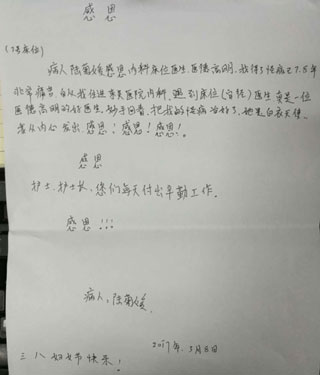 感恩
(7号床位)
病人陆菊媛感恩内科床位医生,医德高明,我得了怪病已7.8年
非常痛苦,自从我住进 医院内科,遇到床位(台柱)医生真是一位
医德高明的好医生,妙手回春,把我的怪病治好了,她是白衣天使。
我从内心发出,感恩!感恩!感恩!。
感恩
护士.护士长,您们每天付出辛勤工作。
感恩!!!
病人:陆菊媛
2017年.3月8日
三八妇女节快乐!